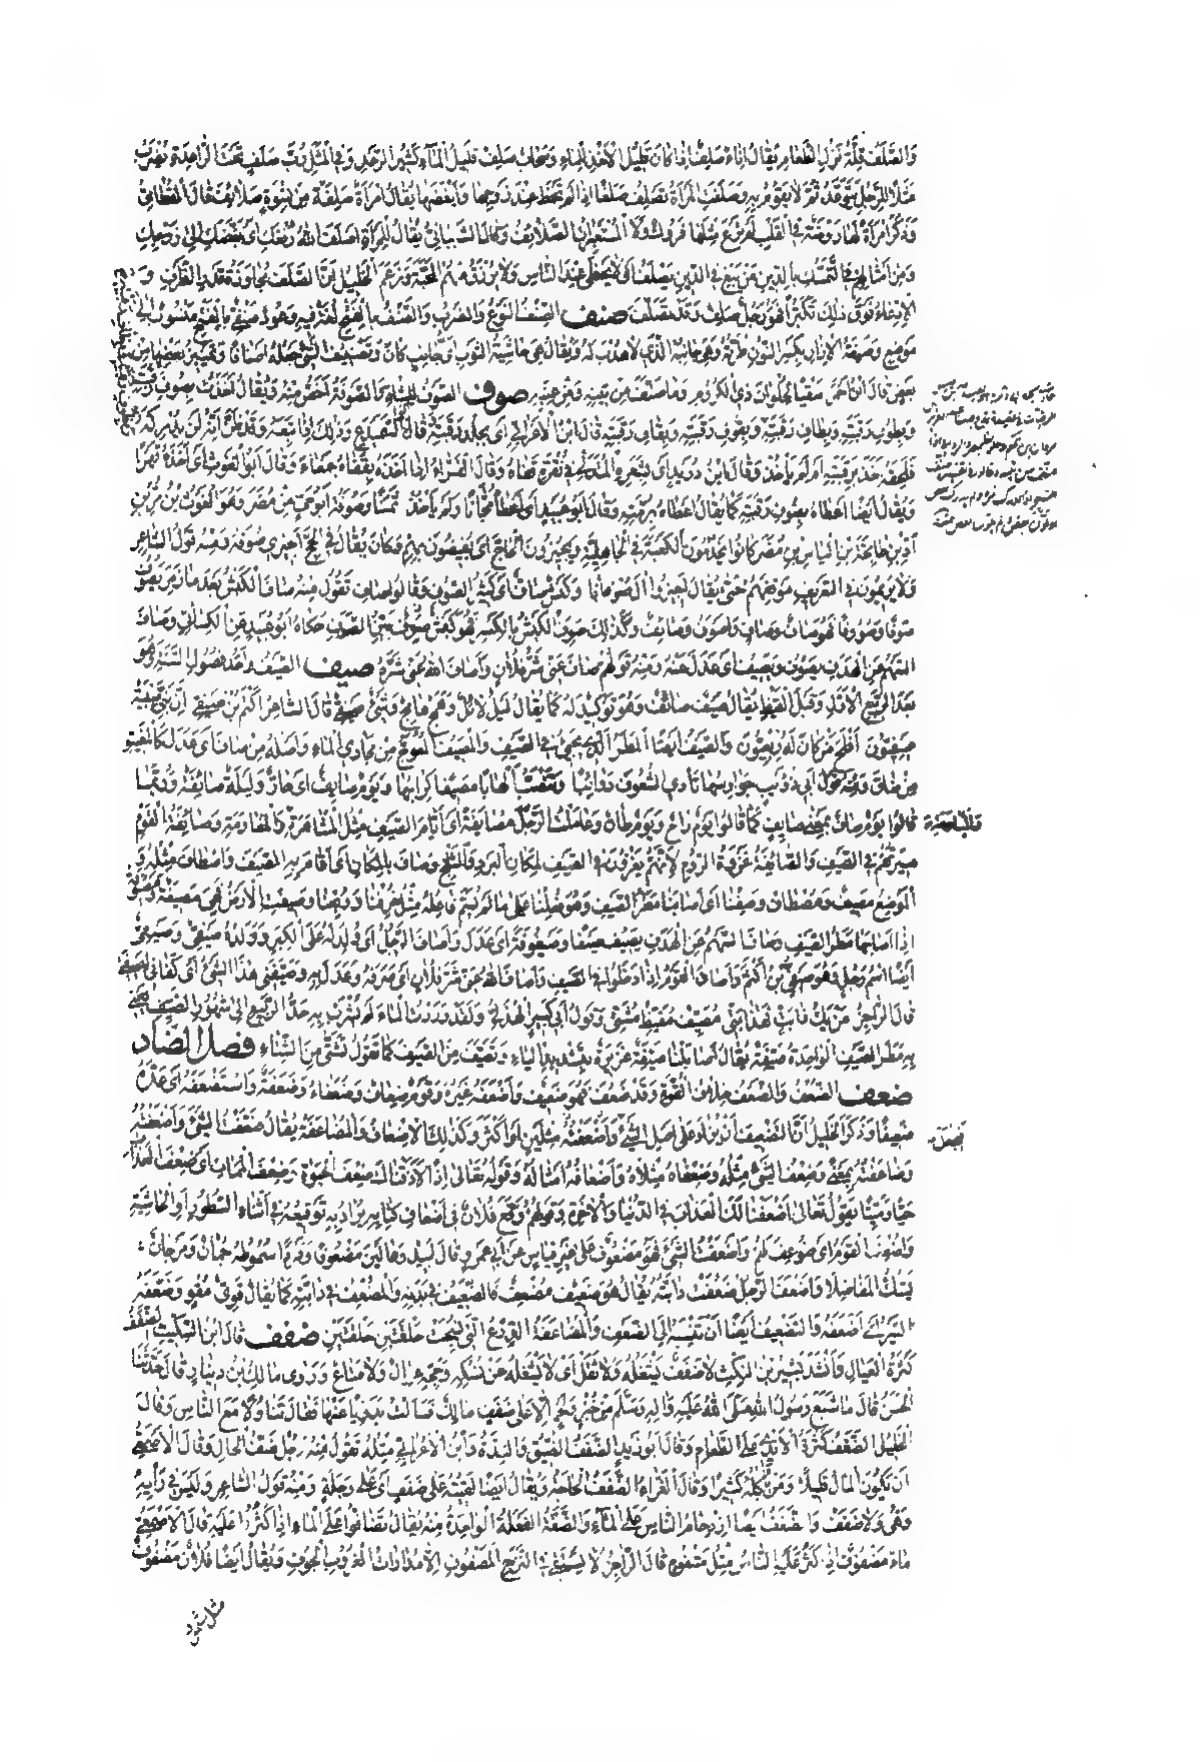 والصلف قلة نزل الطعام يقال اناء صلف اذا كان قليل الاخذ للماء وسحاب صلف قليل الماء كثير الرعد وفي المثل رب صلف تحت الراعدة يضرب
مثلا للرجل يتوعد ثم لا يقوم به وصلفت المراة تصلف صلفا اذا لم تحظ عند زوجها وابغضها يقال امراة صلفة من نسوة صلائف قال القطامي
وذكر امراة لها روضة في القلب لم ترع مثلها فروك ولا المستعبرات الصلائف وقال الشيباني يقال للمراة اصلف الله رفغك اي بغضك الى زوجك
ومن امثالهم في التمسك بالدين من يبغ في الدين يصلف اي لا يحظى عند الناس ولا يرزق منهم المحبة وزعم الخليل ان الصلف مجاوزة قدر الظرف و
الادعاء فوق ذلك تكبرا فهو رجل صلف وقد تصلف صنف الصنف النوع والضرب والصنف بالفتح لغة فيه وعود صنفي بالفتح منسوب الى
موضع وصنفة الازار بكسر النون طرته وهي جانبه الذي لا هدب له ويقال هي حاشية الثوب اي جانب كان وتصنيف الشيء جعله اصنافا وتمييز بعضها من
بعض قال ابن احمر سقيا لحلوان ذي الكروم وما صنف من تينه ومن عنبه صوف الصوف للشاة والصوفة اخص منه ويقال اخذت بصوف رقبته
وبطوف رقبته وبظاف رقبته وبقوف رقبته وبقاف رقبته قال ابن الاعرابي اي بجلد رقبته قال ابو السميدع وذلك اذا تبعه وقد ظن انه لن يدركه
فلحقه اخذ برقبته ام لم ياخذ وقال ابن دريد اي بشعره المتدلي في نقرة قفاه وقال الفراء اذا اخذه بقفاه جمعاء وقال ابو الغوث اي اخذه قهرا
ويقال ايضا اعطاه بصوف رقبته كما يقال اعطاه برمته وقال ابو عبيد اي اعطاه مجانا ولم ياخذ ثمنا وصوفة ابو حي من مضر وهو الغوث بن مر بن
اد بن طابخة بن الياس بن مضر كانوا يخدمون الكعبة في الجاهلية ويجيزون الحاج اي يفيضون بهم فكان يقال في الحج اجيزي صوفة ومنه قول الشاعر
ولا يريمون في التعريف موقفهم حتى يقال اجيزوا ال صوفانا وكبش صاف اي كثير الصوف وقالوا صاف تقول منه صاف الكبش بعد ما زمر يصوف
صوفا وصووفا فهو صاف وصاف واصوف وصائف وكذلك صوف الكبش بالكسر فهو كبش صوف بين الصوف حكاه ابو عبيد عن الكسائي وصاف
السهم عن الهدف يصوف ويصيف اي عدل عنه ومنه قولهم صاف عني شر فلان واصاف الله عني شره صيف الصيف واحد فصول السنة وهو
بعد الربيع الاول وقبل القيظ يقال صيف صائف وهو توكيد له كما يقال ليل لائل وهمج هامج وشيء صيفي قال الشاعر اكثم بن صيفي ان بني صبية
صيفيون افلح من كان له ربعيون والصيف ايضا المطر الذي يجيء في الصيف والمصيف المعوج من مجاري الماء واصله من صاف اي عدل كالمضيق
من ضاق ومنه قول ابي ذؤيب جوارسها تاوي الشعوف دوائبا وتنقض الهابا مصيفا كرابها ويوم صايف اي حار وليلة صائفة وربما
قالوا يوم صاف بمعنى صايف كما قالوا يوم راح ويوم طان وعاملت الرجل مصايفة اي ايام الصيف مثل المشاهرة والمعاومة وصائفة القوم
ميرتهم في الصيف والصائفة غزوة الروم لانهم يغزون في الصيف لمكان البرد والثلج وصاف بالمكان اي اقام به الصيف واصطاف مثله و
الموضع مصيف ومصطاف وصفنا اي اصابنا مطر الصيف وهو فعلنا على ما لم يسم فاعله مثل خرفنا وربعنا وصيفت الارض فهي مصيفة ومصيوفة
اذا اصابها مطر الصيف وصاف السهم عن الهدف يصيف صيفا وصيفوفة اي عدل واصاف الرجل اي ولد له على الكبر وولده صيفي وصيفي
ايضا اسم رجل وهو صيفي بن اكثم واصاف القوم اذا دخلوا في الصيف واصاف الله عني شر فلان اي صرفه وعدل به وصيفني هذا الشيء اي كفاني لصيفي
قال الراجز من يك ذا بت فهذا بتي مصيف مقيظ مشتي وقول ابي كبير الهذلي ولقد وردت الماء لم يشرب به حد الربيع الى شهور الصيف يعني
به مطر الصيف الواحدة صيفة يقال اصابتنا صيفة غزيرة بتشديد الياء وتصيف من الصيف كما تقول تشتى من الشتاء فصل الضاد
ضعف الضعف والضعف خلاف القوة وقد ضعف فهو ضعيف واضعفه غيره وقوم ضعاف وضعفاء وضعفة واستضعفه اي عده
ضعيفا وذكر الخليل ان التضعيف ان يزاد على اصل الشيء فيجعل مثلين او اكثر وكذلك الاضعاف والمضاعفة يقال ضعفت الشيء واضعفته
وضاعفته بمعنى وضعف الشيء مثله وضعفاه مثلاه واضعافه امثاله وقوله تعالى اذا لاذقناك ضعف الحيوة وضعف الممات اي ضعف العذاب
حيا وميتا يقول تعالى اضعفنا لك العذاب في الدنيا والاخرة وقولهم وقع فلان في اضعاف كتابه يراد به توقيعه في اثناء السطور او الحاشية
واضعف القوم اي ضوعف لهم واضعفت الشيء فهو مضعوف على غير قياس عن ابي عمرو وقال لبيد وعالين مضعوفا وفردا سموطه جمان ومرجان
يشك المفاصلا واضعف الرجل ضعفت دابته يقال هو ضعيف مضعف فالضعيف في بدنه والمضعف في دابته كما يقال قوي مقو وضعفه
السير اي اضعفه والتضعيف ايضا ان تنسبه الى الضعف والمضاعفة الدرع التي نسجت حلقتين حلقتين ضفف قال ابن السكيت الضفف
كثرة العيال وانشد لبشير بن النكث لا ضفف يشغله ولا ثقل اي لا يشغله عن نسكه وحجه عيال ولا متاع وروى مالك بن دينار قال حدثنا
الحسن قال ما شبع رسول الله صلى الله عليه واله وسلم من خبز ولحم الا على ضفف قال مالك فسالت بدويا عنها فقال تناولا مع الناس وقال
الخليل الضفف كثرة الايدي على الطعام وقال ابو زيد الضفف الضيق والشدة وابن الاعرابي مثله تقول منه رجل ضف الحال وقال الاصمعي
ان يكون المال قليلا ومن ياكله كثيرا وقال الفراء الضفف الحاجة ويقال ايضا لقيته على ضفف اي على عجلة ومنه قول الشاعر وليس في رايه
وهن ولا ضفف والضفف ايضا ازدحام الناس على الماء والضفة الفعلة الواحدة منه يقال تضافوا على الماء اذا كثروا عليه قال الاصمعي
ماء مضفوف اذا كثر عليه الناس مثل مشفوه قال الراجز لا يستقي في النزح المضفوف الا مدارات الغروب الجوف ويقال ايضا فلان مضفوف